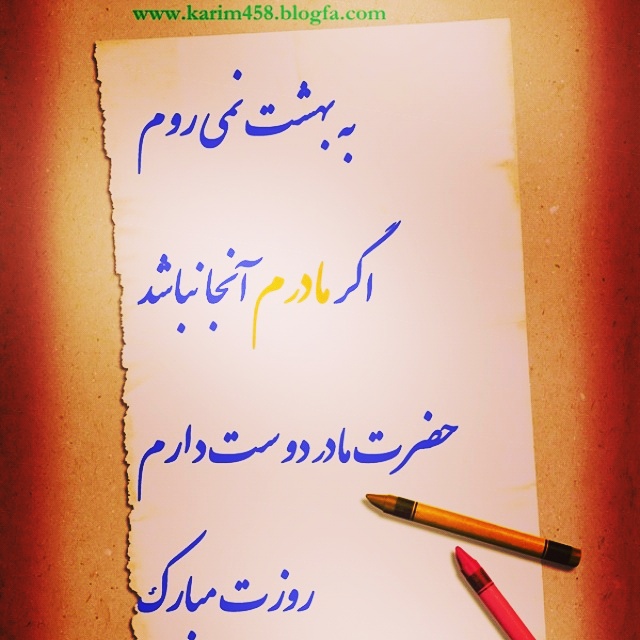 www.karim458.blogfa.com
به بهشت نمی روم
اگر مادرم آنجا نباشد
حضرت مادر دوست دارم
روزت مبارک